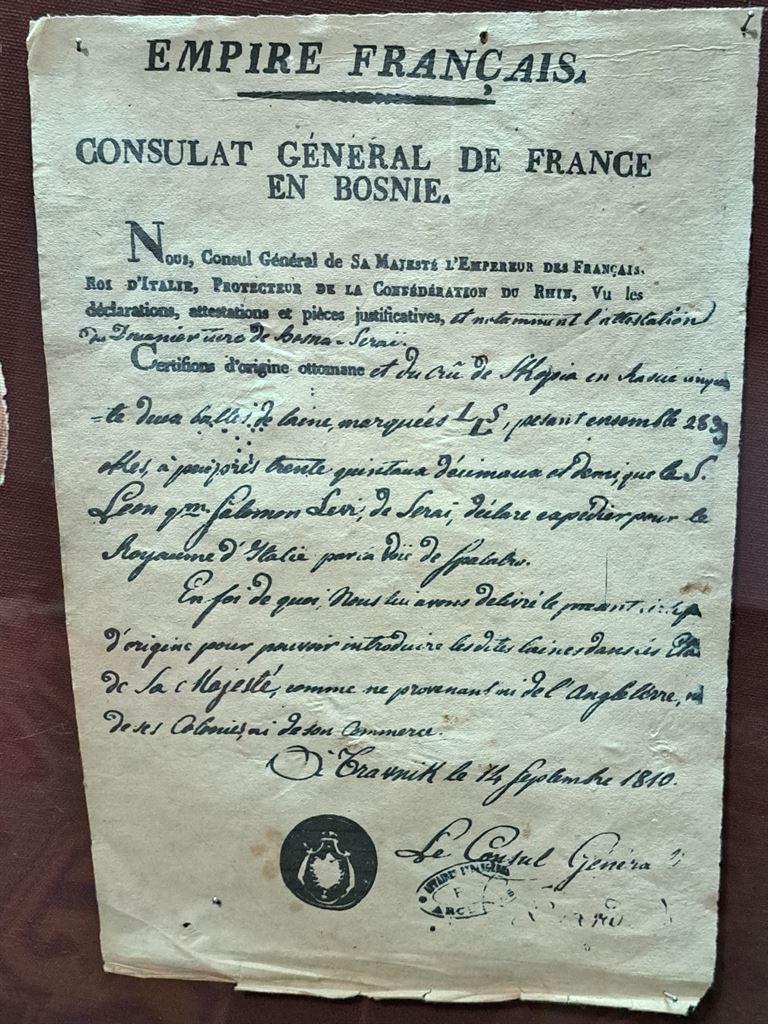 EMPIRE FRANÇAIS.
CONSULAT GÉNÉRAL DE FRANCE
EN BOSNIE.
Nous, Consul Général de SA MAJESTÉ L'EMPEREUR DES FRANÇAIS,
ROI D'ITALIE, PROTECTEUR DE LA CONFÉDÉRATION DU RHIN, Vu les
déclarations, attestations et pièces justificatives, et notamment l'attestation
du Douanier turc de Bosna-Serai.
Certifions d'origine ottomane et du crû de Skopia en
-te deux balles de laine, marquées LLS, pesant ensemble
okes, à peu près trente quintaux décimaux et demi, que le S.
Leon qm. Salomon Levi, de Serai, déclare expédier pour le
Royaume d'Italie par la voie de Spalatro.
En foi de quoi, Nous lui avons délivré le présent
d'origine pour pouvoir introduire lesdites laines dans les Eta
de Sa Majesté, comme ne provenant ni de l'Angleterre, ni
de ses Colonies, ni de son Commerce.
À Travnik le 14 Septembre 1810.
Le Consul Généra
AFFAIRES ETRANGERES